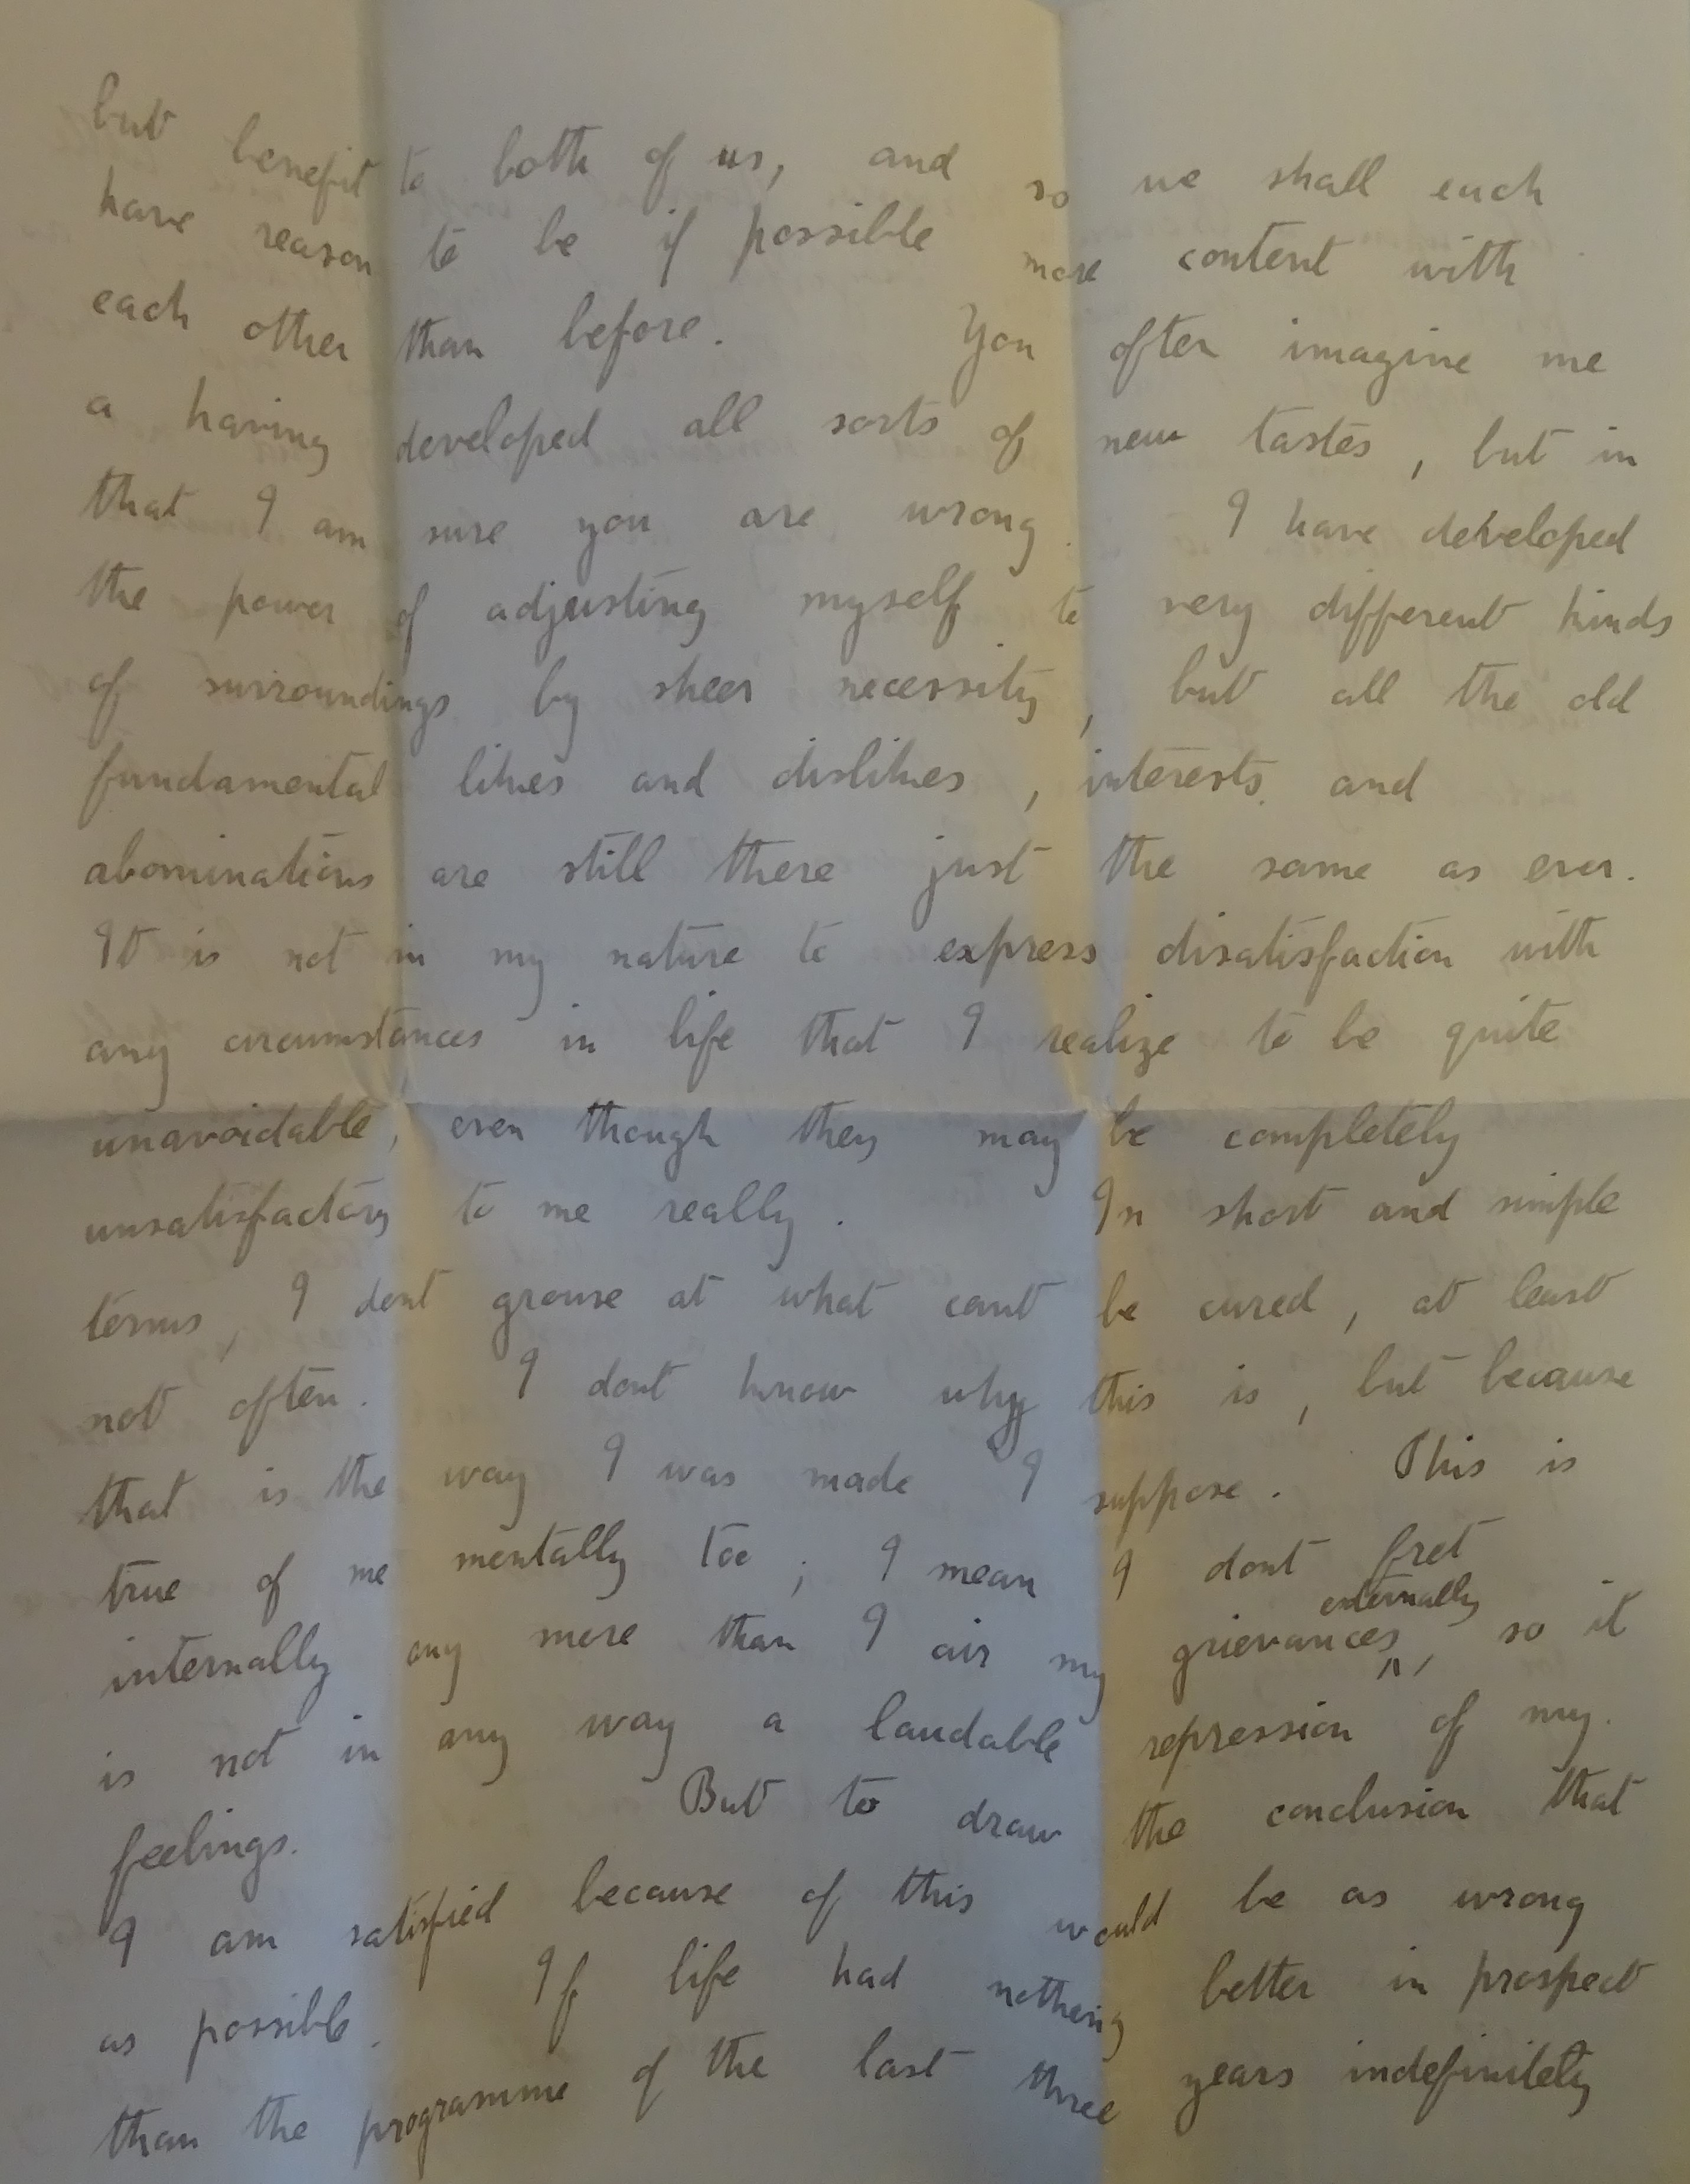 but benefit to both of us, and so we shall each
have reason to be if possible more content with
each other than before. You often imagine me
a having developed all sorts of new tastes, but in
that I am sure you are wrong. I have developed
the power of adjusting myself to very different kinds
of surroundings by sheer necessity, but all the old
fundamental likes and dislikes, interests and
abominations are still there just the same as ever.
It is not in my nature to express disatisfaction with
any circumstances in life that I realize to be quite
unavoidable, even though they may be completely
unsatisfactory to me really. In short and simple
terms, I dont grouse at what cant be cured, at least
not often. I dont know why this is, but because
that is the way I was made I suppose. This is
true of me mentally too; I mean I dont fret
internally any more than I air my grievances externally, so it
is not in any way a laudable repression of my
feelings. But to draw the conclusion that
I am satisfied because of this would be as wrong
as possible. If life had nothing better in prospect
than the programme of the last three years indefinitely